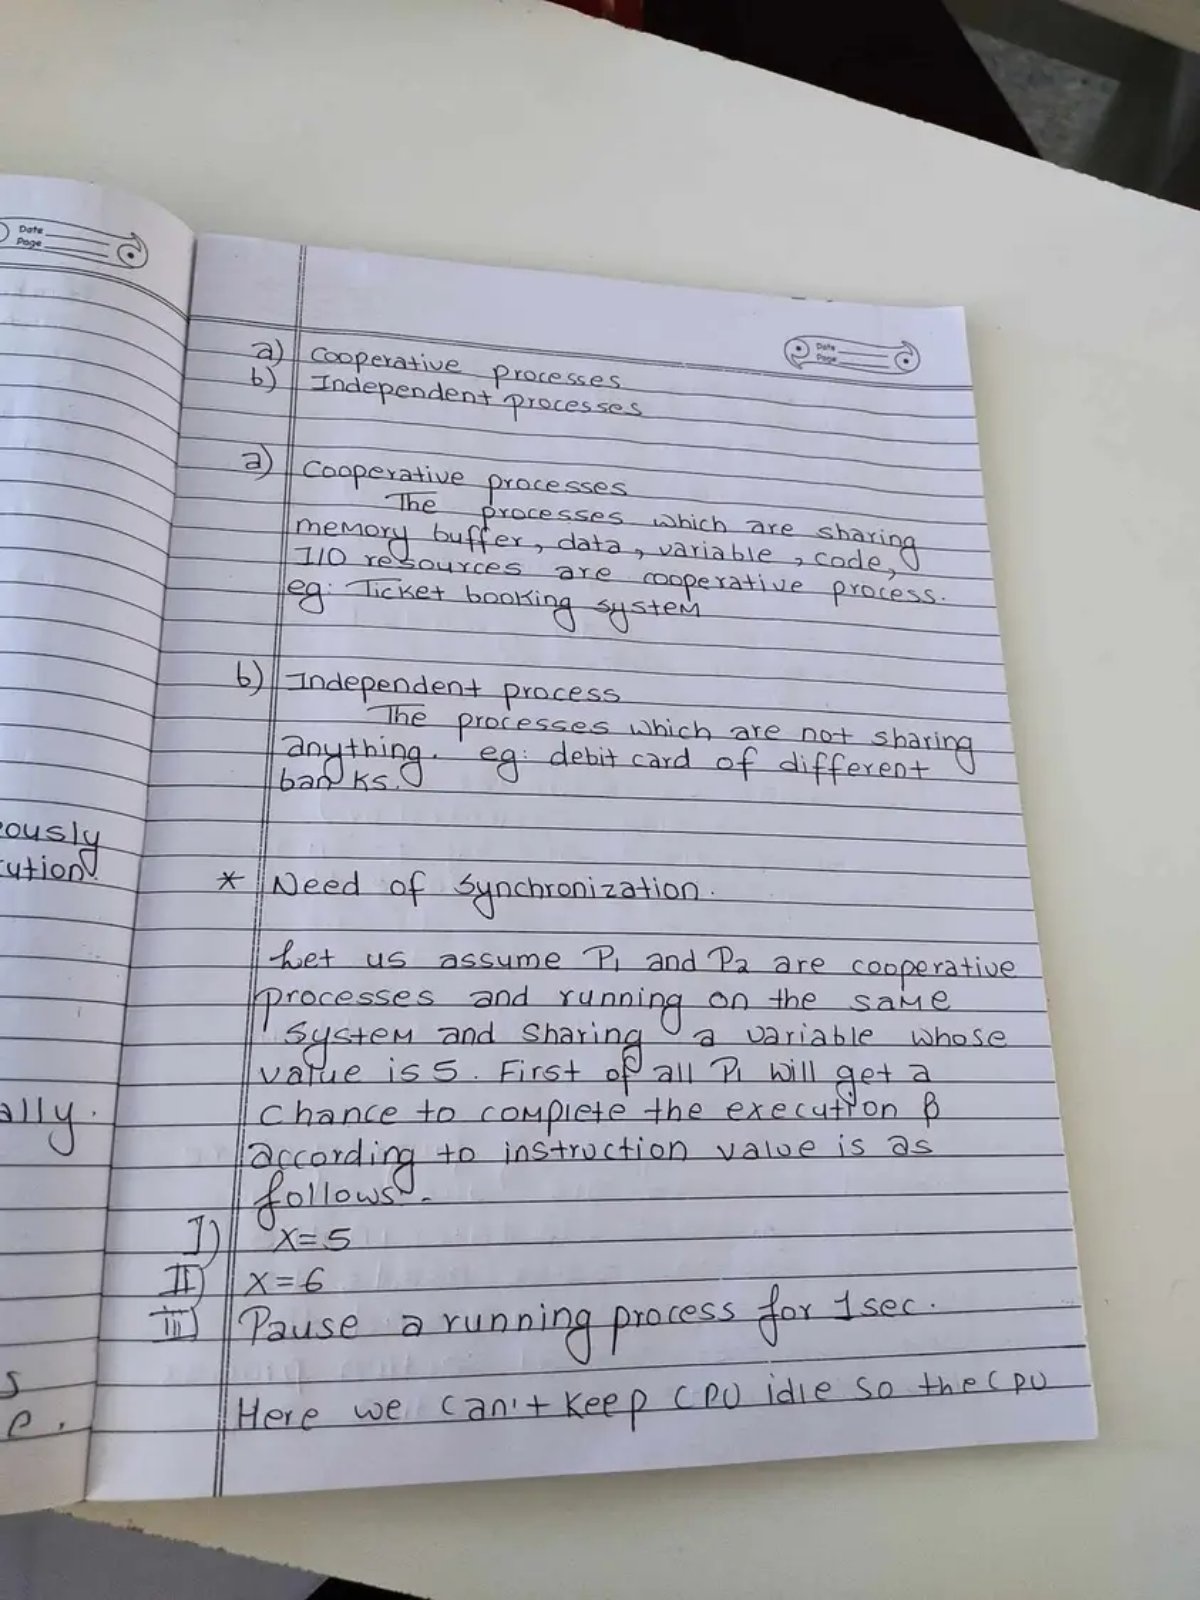 Date
Page
ously
cution.
ally.
s
e.
Date
Page
a) Cooperative processes
b) Independent processes
a) Cooperative processes
The processes which are sharing
memory buffer, data, variable, code,
I/O resources are cooperative process.
eg: Ticket booking system
b) Independent process
The processes which are not sharing
anything. eg: debit card of different
banks.
* Need of synchronization.
Let us assume P1 and P2 are cooperative
processes and running on the same
system and sharing a variable whose
value is 5. First of all P1 will get a
chance to complete the execution &
according to instruction value is as
follows.
I) x=5
II) x=6
III) Pause a running process for 1 sec.
Here we can't keep CPU idle so the CPU